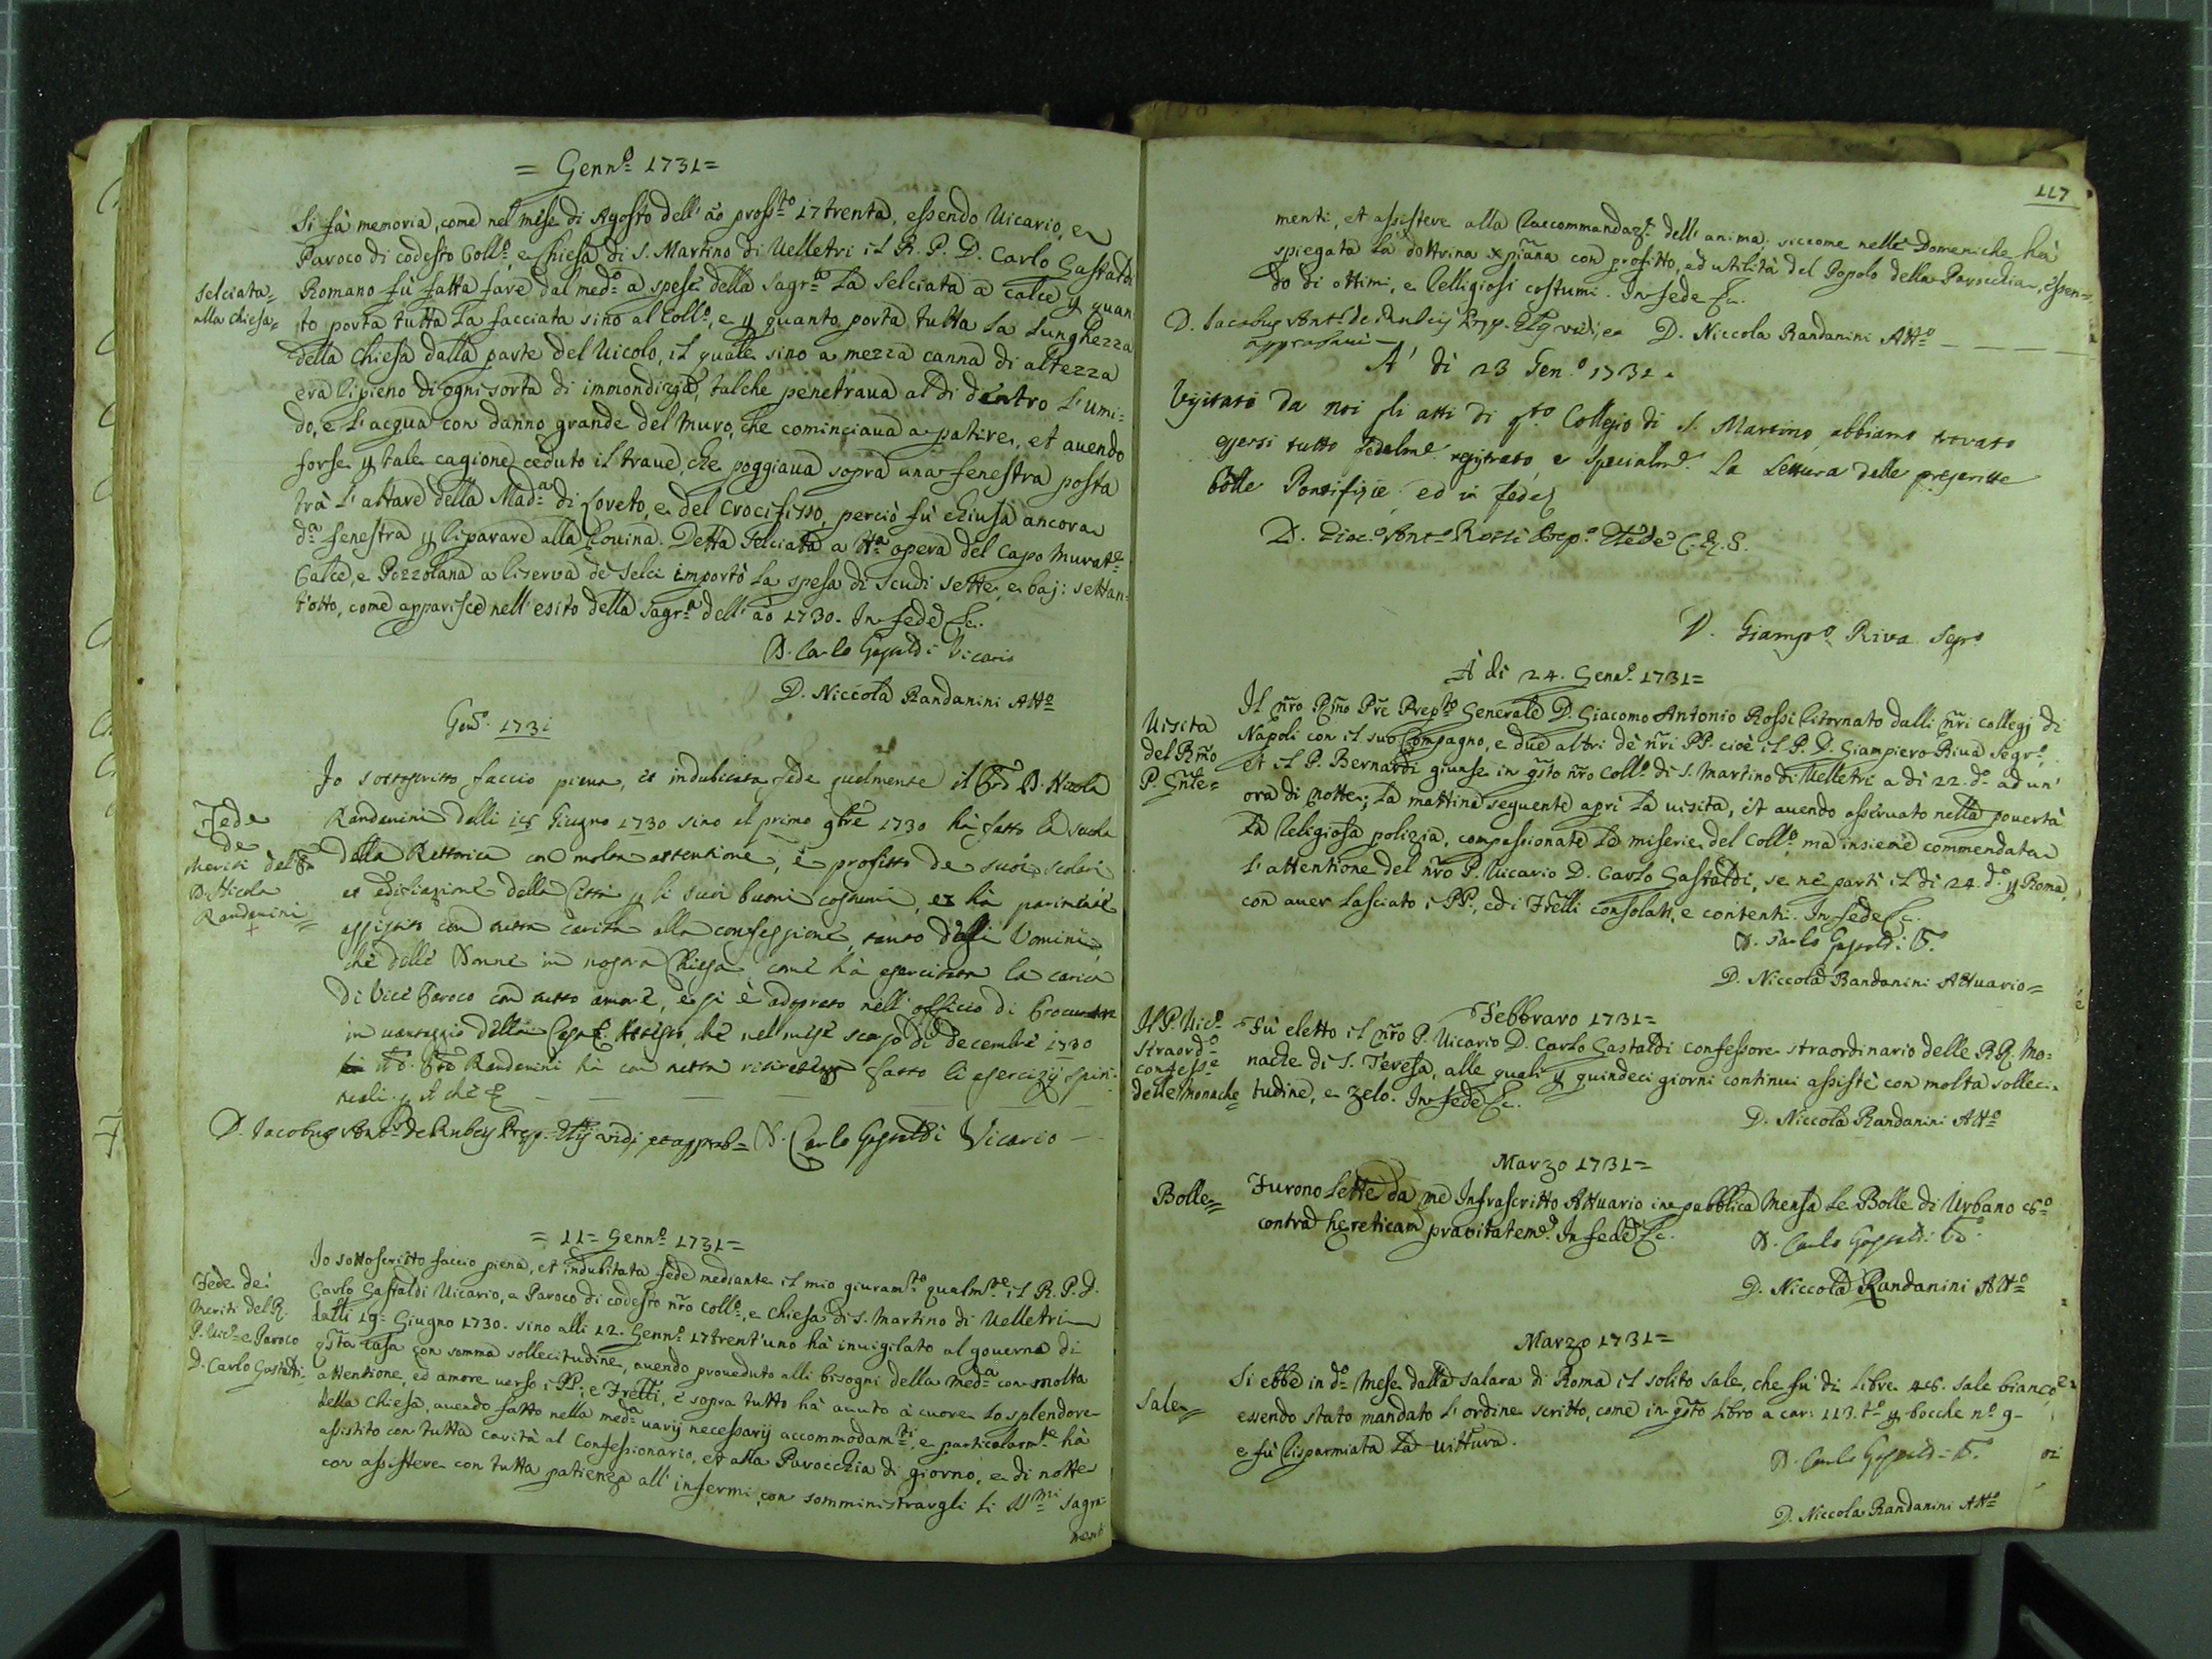 = Genn.º 1731=
Si fà memoria, come nel mese di Agosto dell' ão pross.to 17trenta, essendo Vicario, e
Paroco di codesto Coll.º, e Chiesa di S. Martino di Velletri il R. P. D. Carlo Gastaldi
Selciata=
alla chiesa=
Romano fù fatta fare dal med.º a spese della Sagr.a la selciata a calce p quan
to porta tutta la facciata sino al Coll.º, e p quanto porta tutta la lunghezza
della Chiesa dalla parte del Vicolo, il quale sino a mezza canna di altezza
era ripieno di ogni sorta di immondizia, talche penetrava al di dentro l'umi=
do, e l'acqua con danno grande del muro, che cominciava a patire, et avendo
forse p tale cagione ceduto il trave, che poggiava sopra una fenestra posta
trà l'altare della Mad.a di Loreto, e del Crocifisso, perciò fù chiusa ancora
d.a fenestra p riparare alla Rovina. Detta Selciata a tt.a opera del Capo Murat.e
Calce, e Pozzolana a riserva de selci importò la spesa di scudi sette, e baj: settan=
t'otto, come apparisce nell'esito della Sagr.a dell' ão 1730. In fede &c.
D. Carlo Gastaldi Vicario
D. Niccola Randanini Att.º
Gen.º 1731
Io sottoscritto faccio piena, et indubitata fede qualmente il P. D. Nicola
Fede
de
meriti del P.
D. Nicola
Randanini=
+
Randanini dalli 15 Giugno 1730 sino al primo 9bre 1730 hà fatto la scuola
della Rettorica con molta attentione, e profitto de suoi scolari
et edificazione della Città p li suoi buoni costumi, et hà parimente
assistito con tutta carità alla confessione, tanto degli Uomini,
che delle Donne in nostra Chiesa, come hà esercitata la carica
di Vice Paroco con tutto amore, e si è adoprato nell'officio di Procuratore
in vantaggio della Casa. che nel mese scorso di Decembre 1730
d.º Pre Randanini hà con tutta ritiratezza fatto li esercizij spiri-
tuali. p il che &
D. Jacobus Ant.s de Rubeis Prep. Glis vidi, et approb= D. Carlo Gastaldi Vicario —
= 11= Genn.º 1731=
Io sottoscritto faccio piena, et indubitata fede mediante il mio giuram.to qualm.te il R. P. D.
Fede dei
Meriti del R.
P. Vic.º e Paroco
D. Carlo Gastaldi=
Carlo Gastaldi Vicario, e Paroco di codesto nro Coll.º, e Chiesa di S. Martino di Velletri
dalli 19= Giugno 1730. sino alli 12. Genn.º 17trent'uno hà invigilato al governo di
qsta casa con somma sollecitudine, avendo proveduto alli bisogni della med.a con molta
attentione, ed amore verso i PP: e Frelli, e sopra tutto hà avuto à cuore lo splendore
della Chiesa, avendo fatto nella med.a varij necessarij accommodam.ti, e particolarm.te hà
assistito con tutta carità al Confessionario, et alla Parocchia di giorno, e di notte
con assistere con tutta patienza all'infermi, con somministrargli li SS.mi Sagra-
menti
117
menti, et assistere alla Raccommandaz.e dell'anima, siccome nelle Domeniche hà
spiegata la dottrina Xpiana con profitto, ed utilità del Popolo della Parocchia, essen=
do di ottimi, e Religiosi costumi. In fede &c.
D. Jacobus Ant.s de Rubeis Prep. Glis vidi, et D. Niccola Randanini Att.º
approbavi —
A' dì 23 Gen.º 1731.
Visitati da noi gli atti di q.to Collegio di S. Martino, abbiamo trovato
essersi tutto fedelm.e registrato e specialm.e la Lettura delle prescritte
Bolle Pontifizie. ed in fede
D. Giac.º Ant.º Rossi Prep.º Gle C.R.S.
D. Giamp.º Riva Segr.º
A dì 24. Genn.º 1731=
Visita
del Rmo
P. Gnle=
Il nro Rmo Pre Prep.to Generale D. Giacomo Antonio Rossi ritornato dalli nri collegj di
Napoli con il suo Compagno, e due altri de nri PP. cioè il P. D. Giampiero Riva Segr.º,
et il P. Bernardi giunse in qsto nro Coll.º di S. Martino di Velletri a dì 22. d.º ad un'
ora di notte; la mattina seguente aprì la visita, et avendo osservato nella povertà
la Religiosa polizia, compassionate le miserie del Coll.º, ma insieme commendata
l'attentione del nro P. Vicario D. Carlo Gastaldi, se nè partì il dì 24. d.º p Roma,
con aver lasciato i PP., ed i Frelli consolati, e contenti. In fede &c.
D. Carlo Gastaldi V.º
D. Niccola Randanini Attuario=
Febbraro 1731=
Il P. Vic.º
straord.º
confess.e
delle Monache=
Fù eletto il nro P. Vicario D. Carlo Gastaldi confessore straordinario delle RR. Mo=
nache di S. Teresa, alle quali p quindeci giorni continui assistè con molta solleci=
tudine, e zelo. In fede &c.
D. Niccola Randanini Att.º
Marzo 1731=
Bolle=
Furono lette da me Infrascritto Attuario in pubblica mensa le Bolle di Urbano
contra hereticam pravitatem. In fede &c.
D. Carlo Gastaldi V.º
D. Niccola Randanini Att.º
Marzo 1731=
Sale=
Si ebbe in d.º Mese dalla Salara di Roma il solito sale, che fù di libre 46. sale bianco
essendo stato mandato l'ordine scritto, come in qsto libro a car: 113. t.º p bocche n.º 9-
e fù risparmiata la vittura.
D. Carlo Gastaldi V.º
D. Niccola Randanini Att.º